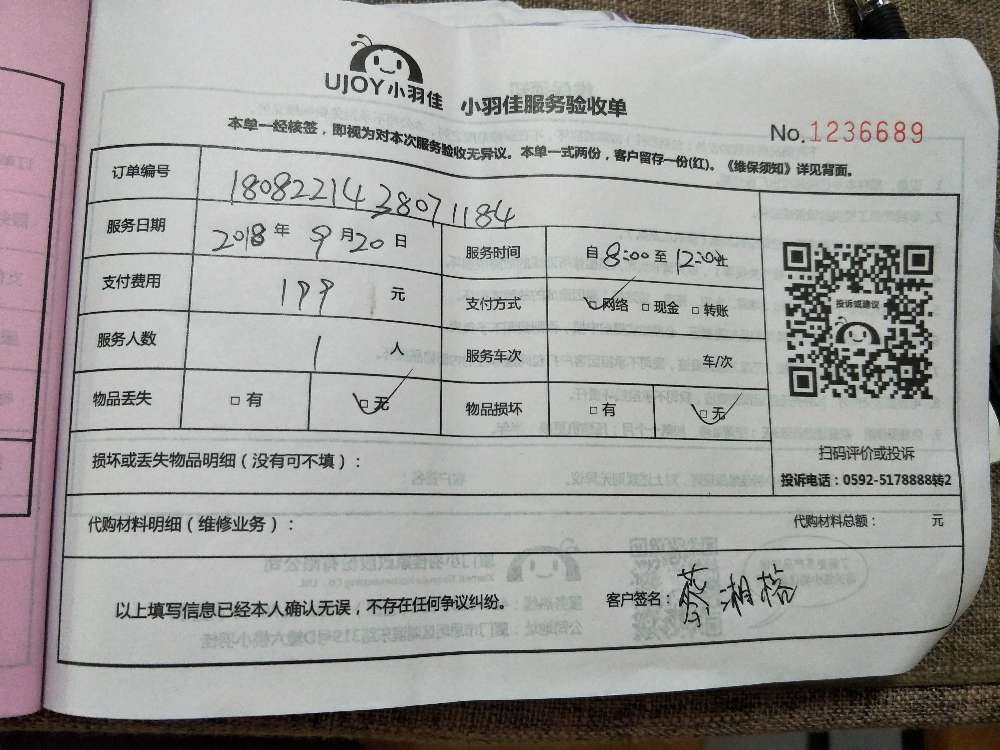 UJOY小羽佳 小羽佳服务验收单
No.1236689
本单一经核签，即视为对本次服务验收无异议。本单一式两份，客户留存一份(红)。《维保须知》详见背面。
订单编号 1808221438071184
服务日期 2018年9月20日 服务时间 自8:00至12:00止
支付费用 199元 支付方式 网络 □现金 □转账
投诉或建议
服务人数 1人 服务车次 车/次
物品丢失 □有 □无 物品损坏 □有 □无
扫码评价或投诉
损坏或丢失物品明细（没有可不填）：
投诉电话：0592-5178888转2
代购材料明细（维修业务）： 代购材料总额： 元
以上填写信息已经本人确认无误，不存在任何争议纠纷。 客户签名：蔡湘榕